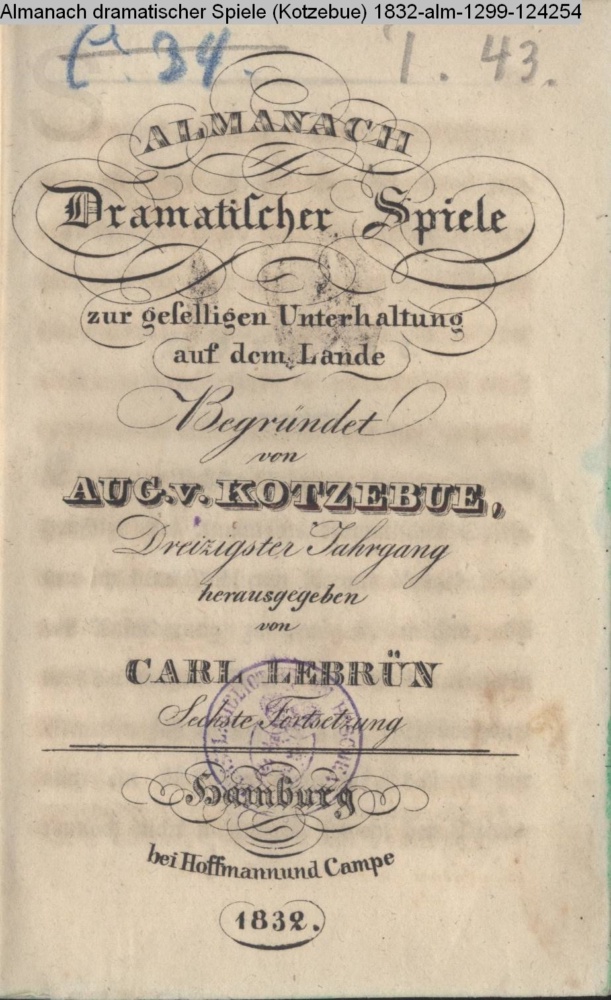 Almanach dramatischer Spiele (Kotzebue) 1832-alm-1299-124254
34.
1. 43.
ALMANACH
Dramatiſcher Spiele
zur geſelligen Unterhaltung
auf dem Lande
Begründet
von
AUG. v. KOTZEBUE,
Dreizigster Jahrgang
herausgegeben
von
CARL LEBRÜN
Sechste Fortsetzung
Hamburg
bei Hoffmann und Campe
1832.